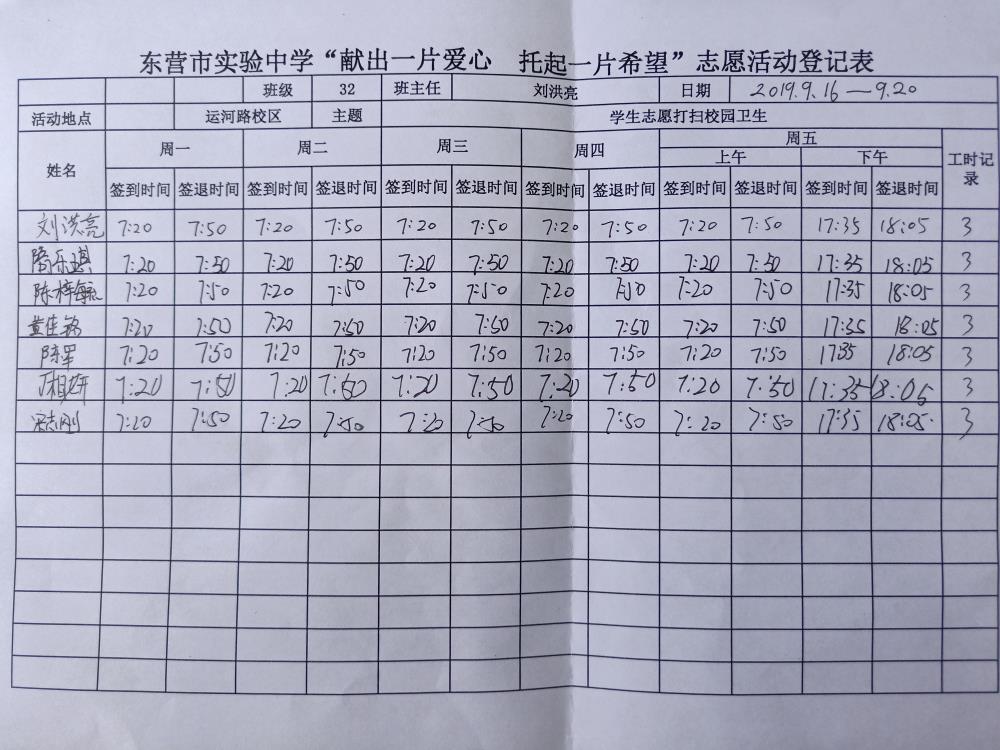 东营市实验中学“献出一片爱心 托起一片希望”志愿活动登记表
班级 32 班主任 刘洪亮 日期 2019.9.16—9.20
活动地点 运河路校区 主题 学生志愿打扫校园卫生
姓名 周一 周二 周三 周四 周五 工时记录
上午 下午
签到时间 签退时间 签到时间 签退时间 签到时间 签退时间 签到时间 签退时间 签到时间 签退时间 签到时间 签退时间
刘洪亮 7:20 7:50 7:20 7:50 7:20 7:50 7:20 7:50 7:20 7:50 17:35 18:05 3
7:20 7:50 7:20 7:50 7:20 7:50 7:20 7:50 7:20 7:50 17:35 18:05 3
陈梓毓 7:20 7:50 7:20 7:50 7:20 7:50 7:20 7:50 7:20 7:50 17:35 18:05 3
黄佳铭 7:20 7:50 7:20 7:50 7:20 7:50 7:20 7:50 7:20 7:50 17:35 18:05 3
陈军 7:20 7:50 7:20 7:50 7:20 7:50 7:20 7:50 7:20 7:50 17:35 18:05 3
7:20 7:50 7:20 7:50 7:20 7:50 7:20 7:50 7:20 7:50 17:35 18:05 3
7:20 7:50 7:20 7:50 7:20 7:50 7:20 7:50 7:20 7:50 17:35 18:05 3